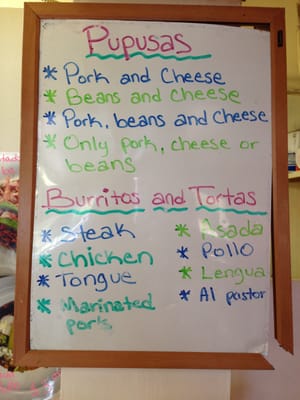 Pupusas
* Pork and Cheese
* Beans and cheese
* Pork, beans and Cheese
* Only pork, cheese or
beans
Burritos and Tortas
* Steak
* Chicken
* Tongue
* Marinated
pork
* Asada
* Pollo
* Lengua
* Al pastor